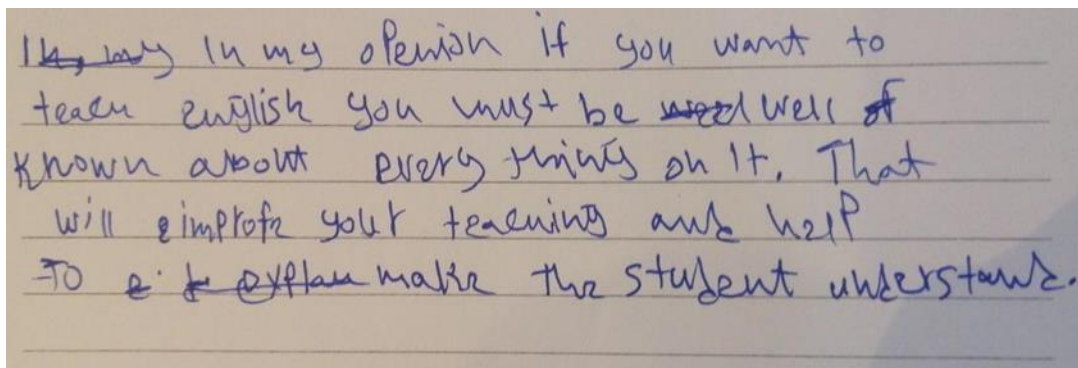 In my In my openion if you want to
teach english you must be weel well of
known about every thing on it. That
will eimprofe your teaching and help
To e t explan make the student understand.